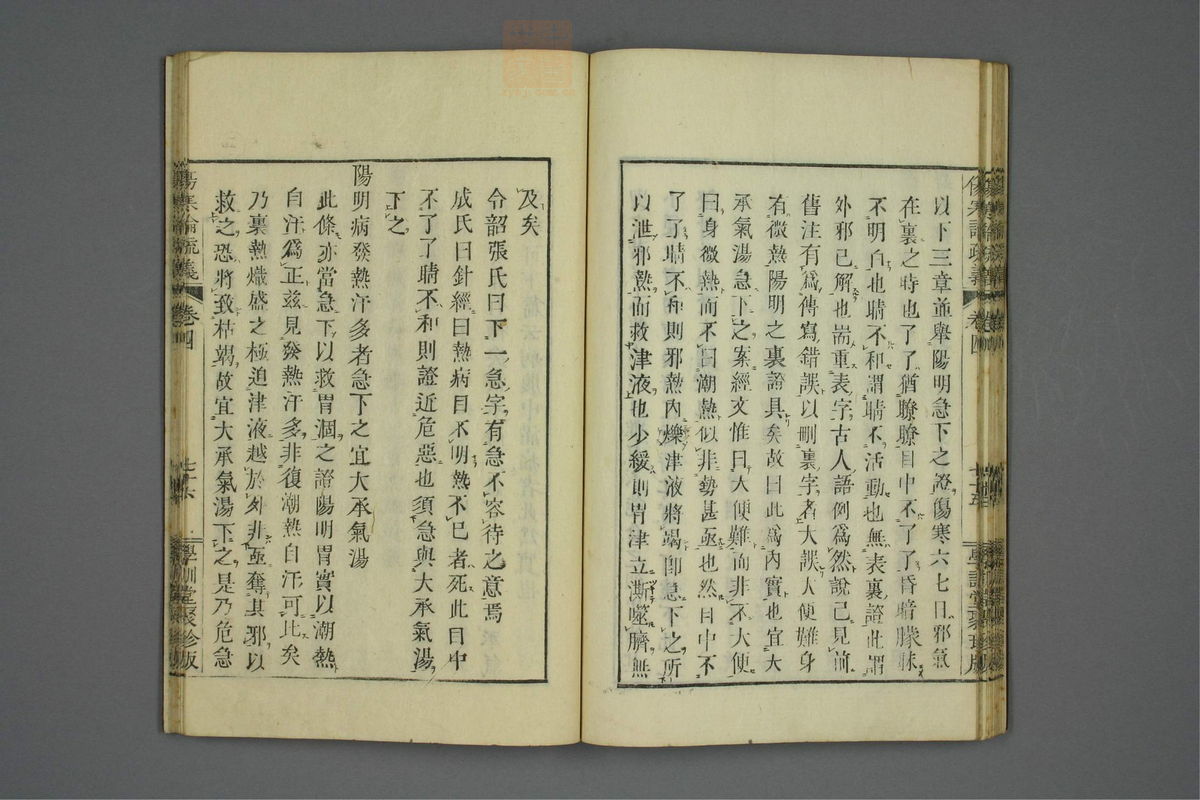 以下三章並舉陽明急下之證傷寒六七日邪氣
在裏之時也了了猶瞭瞭目中不了了昏暗朦昧
不明白也睛不和謂睛不活動也無表裏證此謂
外邪已解也耑重表字古人語例爲然說已見前
舊注有爲傳寫錯誤以刪裏字者大誤大便難身
有微熱陽明之裏證具矣故曰此爲內實也宜大
承氣湯急下之案經文惟曰大便難而非不大便
曰身微熱而不曰潮熱似非勢甚亟也然目中不
了了睛不和則邪熱內爍津液將竭卽急下之所
以泄邪熱而救津液也少緩則胃津立澌噬臍無
及矣
令韶張氏曰下一急字有急不容待之意焉
成氏曰針經曰熱病目不明熱不已者死此目中
不了了睛不和則證近危惡也須急與大承氣湯
下之
陽明病發熱汗多者急下之宜大承氣湯
此條亦當急下以救胃涸之證陽明胃實以潮熱
自汗爲正玆見發熱汗多非復潮熱自汗可比矣
乃裏熱熾盛之極迫津液越於外非亟奪其邪以
救之恐將致枯竭故宜大承氣湯下之是乃危急
傷寒論疏義
卷四
七十六
學訓堂聚珍版